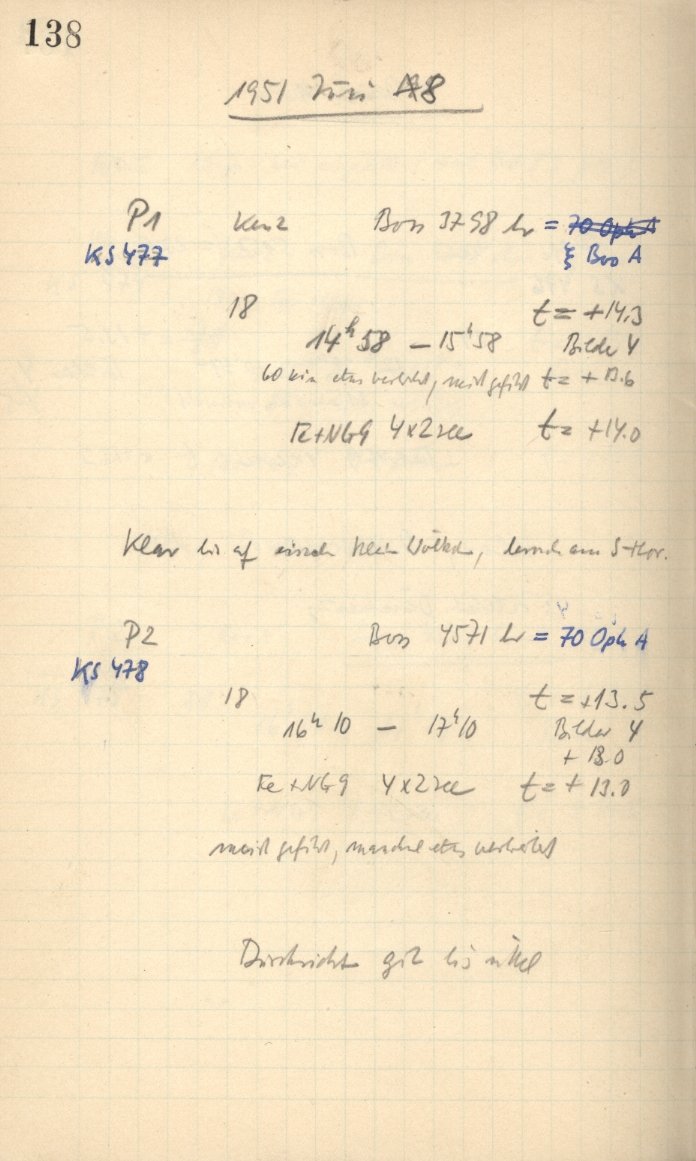 138
1951 Juni 18
P1 Boss 3798 br = 70 Oph A
KS 477 ξ Boo A
18 t = +14,3
14h 58 – 15h 58 Bilder 4
60 min etwas verbreitert, meist geführt t = +13.6
Fe+NG9 4x2 sec t = +14.0
Klar bis auf einzelne kleine Wölkchen, besonders am S-Hor.
P2 Boss 4571 br = 70 Oph A
KS 478
18 t = +13.5
16h 10 – 17h 10 Bilder 4
+ 13.0
Fe+NG9 4x2 sec t = + 13.0
meist geführt, manchmal etwas verbreitert
Durchsicht gut bis mittel